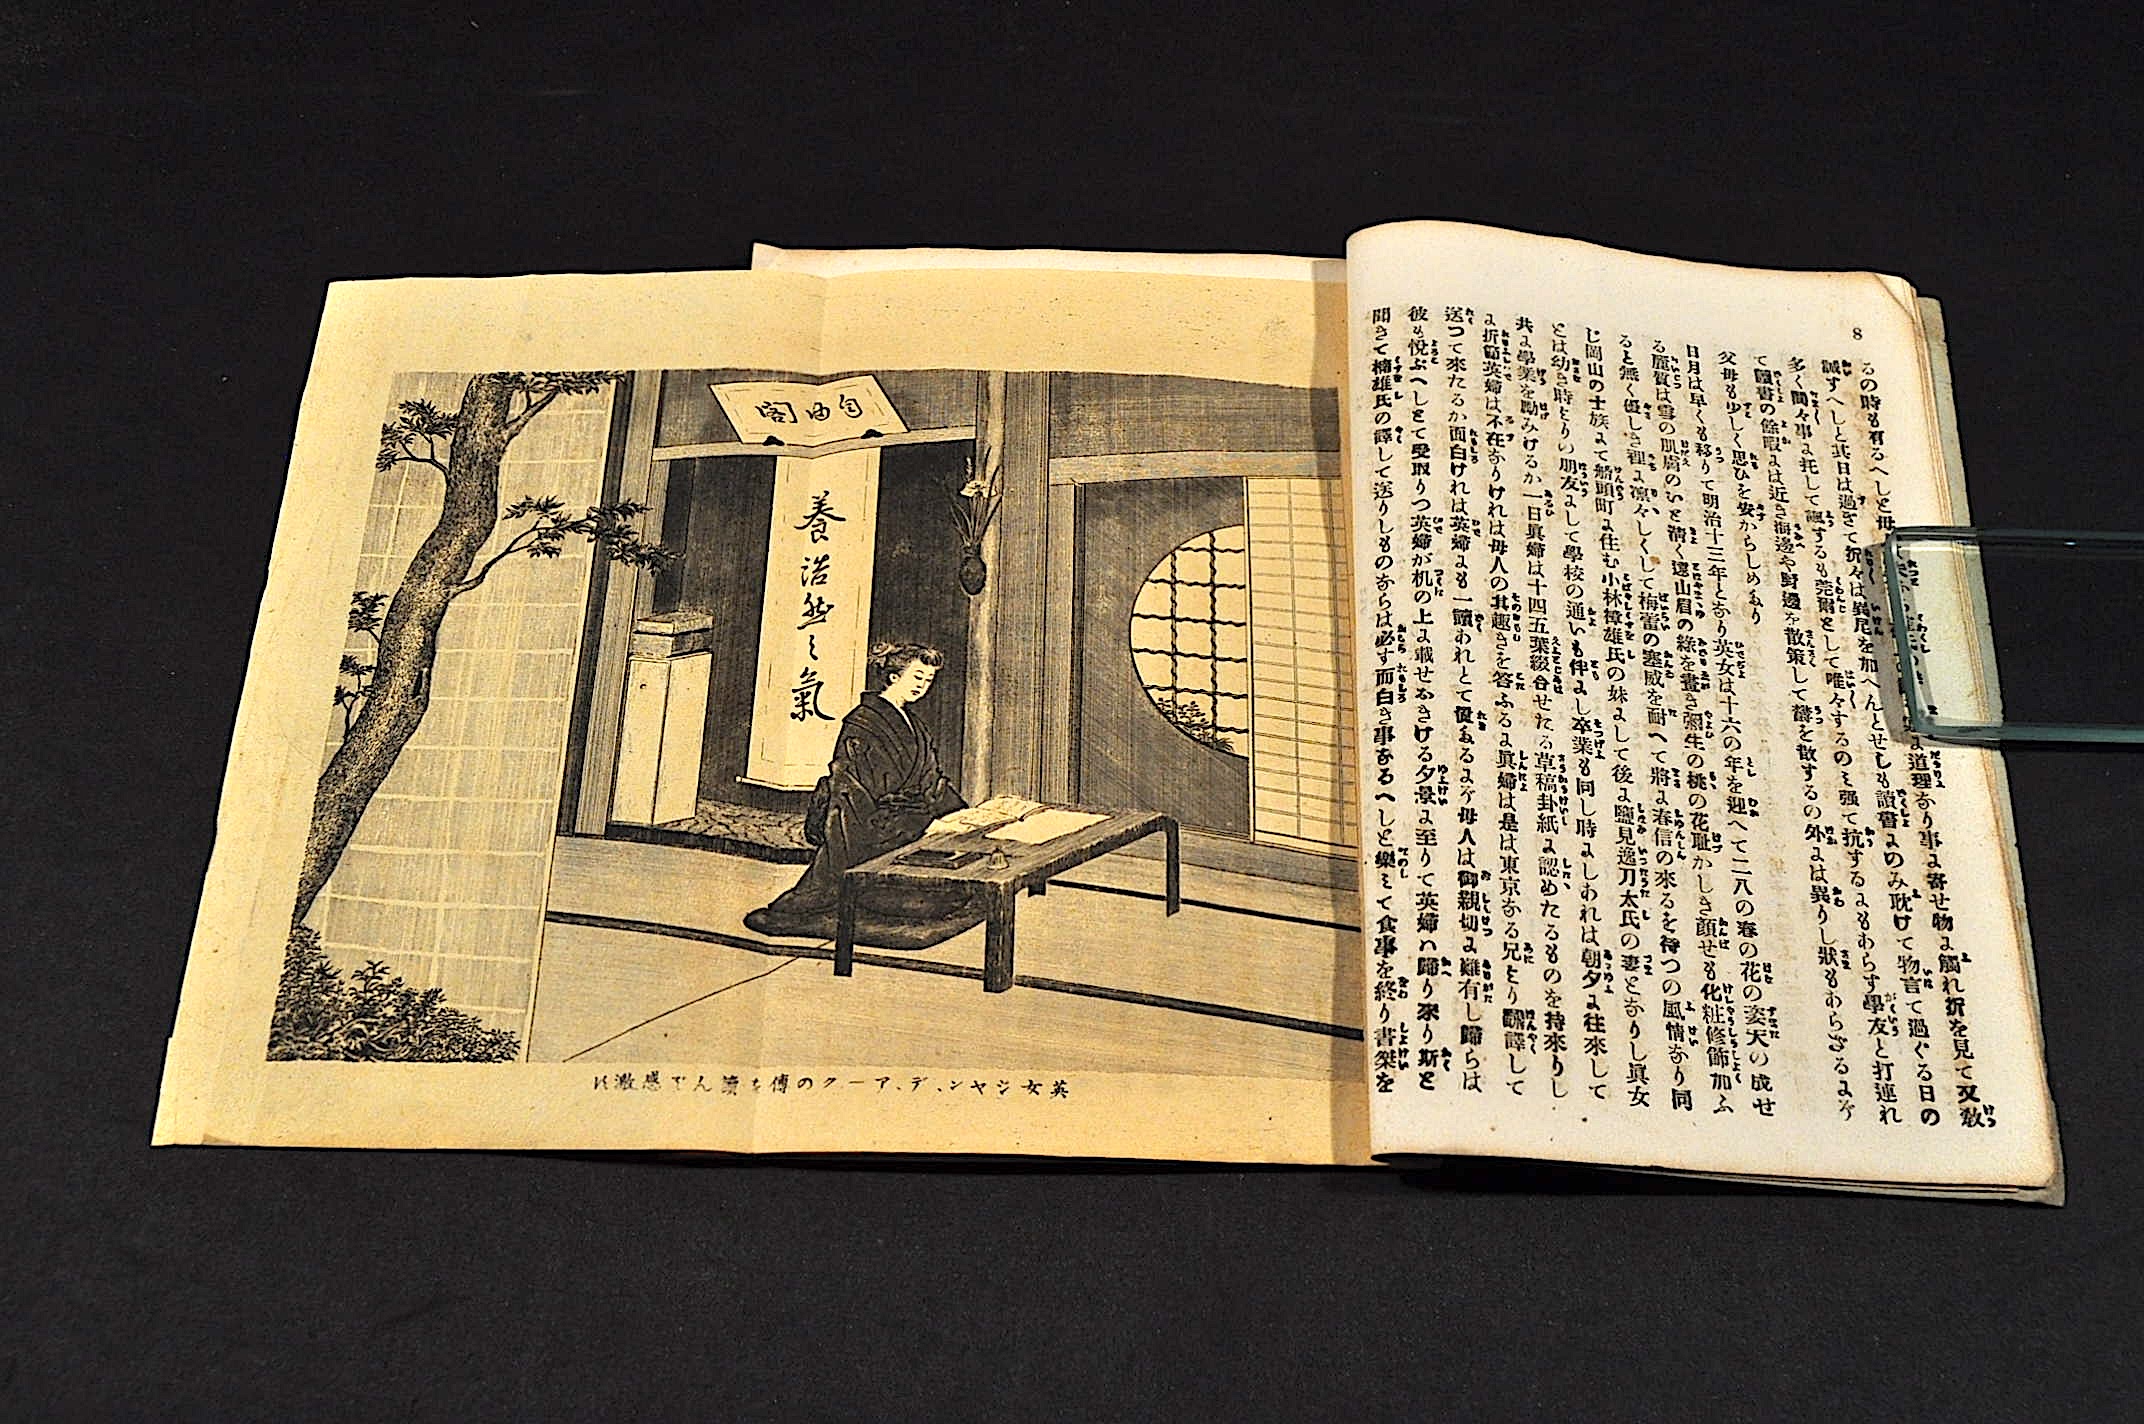 8
るの時も有るへしと母
道理なり事よ寄せ物よ觸れ折を見て又敎
誡すへしと其日は過きて祝々は異見を加へんとせしも讀書よのみ耽けて物言て過ぐる日の
多く間々事よ托して諷するも莞爾として唯々するのミ强て抗するよもあらす學友と打連れ
て讀書の餘暇よは近き海邊や野邊を散策して欝を散するの外よは異りし狀もあらざるよぞ
父母も少しく思ひを安からしめあり
日月は早くも移りて明治十三年となり英女は十六の年を迎へて二八の春の花の姿天の成せ
る麗質は雪の肌膚のいと淸く遠山眉の綠を畫き彌生の桃の花耻かしき顔せも化粧修飾加ふ
ると無く優しき裡よ凛々しくして梅蕾の寒威を耐へて將よ春信の來るを待つの風情なり同
じ岡山の士族よて船頭町よ住む小林樟雄氏の妹よして後よ鹽見逸刀太氏の妻となりし眞女
とは幼き時よりの朋友よして學校の通いも伴よし卒業も同し時よしあれは朝夕よ往來して
共よ學業を勵みけるか一日眞婦は十四五葉綴合せたる草稿卦紙よ認めたるものを持來りし
よ折節英婦は不在なりけれは母人の其趣きを答ふるよ眞婦は是は東京なる兄より飜譯して
送つて來たるか面白けれは英婦よも一讀あれとて促あるよぞ母人は御親切よ難有し歸らは
彼も悅ぶへしとて受取りつ英婦が机の上よ載せおきける夕景よ至りて英婦ハ歸り來り斯と
聞きて樟雄氏の譯して送りしものならは必す面白き事あるへしと樂ミて食事を終り書桀を
自由閣
養浩然之氣
英女ジャンヌ、デ、アークの傳を讀んで感激に